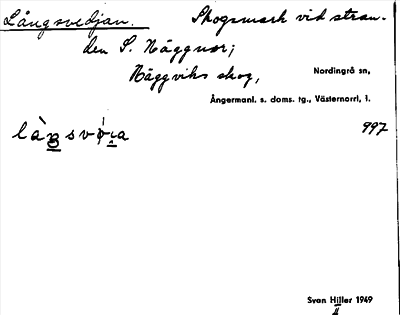 Långsvedjan. Skogsmark vid stran-
den S. Häggnor;
Häggviks skog,
Nordingrå sn,
Ångermanl. s. doms. tg., Västernorrl. l.
997
Sven Hiller 1949
II